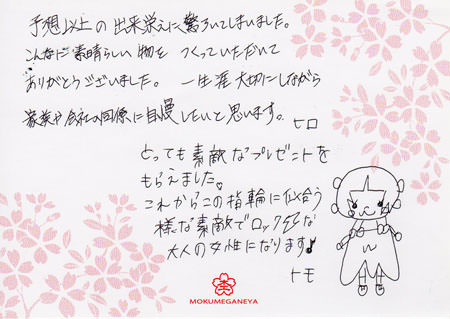 予想以上の出来栄えに驚ろいてしまいました。
こんなに素晴らしい物をつくっていただいて
ありがとうございました。一生涯大切にしながら
家族や会社の同僚に自慢したいと思います。
ヒロ
とっても素敵なプレゼントを
もらえました。
これからこの指輪に似合う
様な素敵でロックな
大人の女性になります♪
トモ
杢
MOKUMEGANEYA